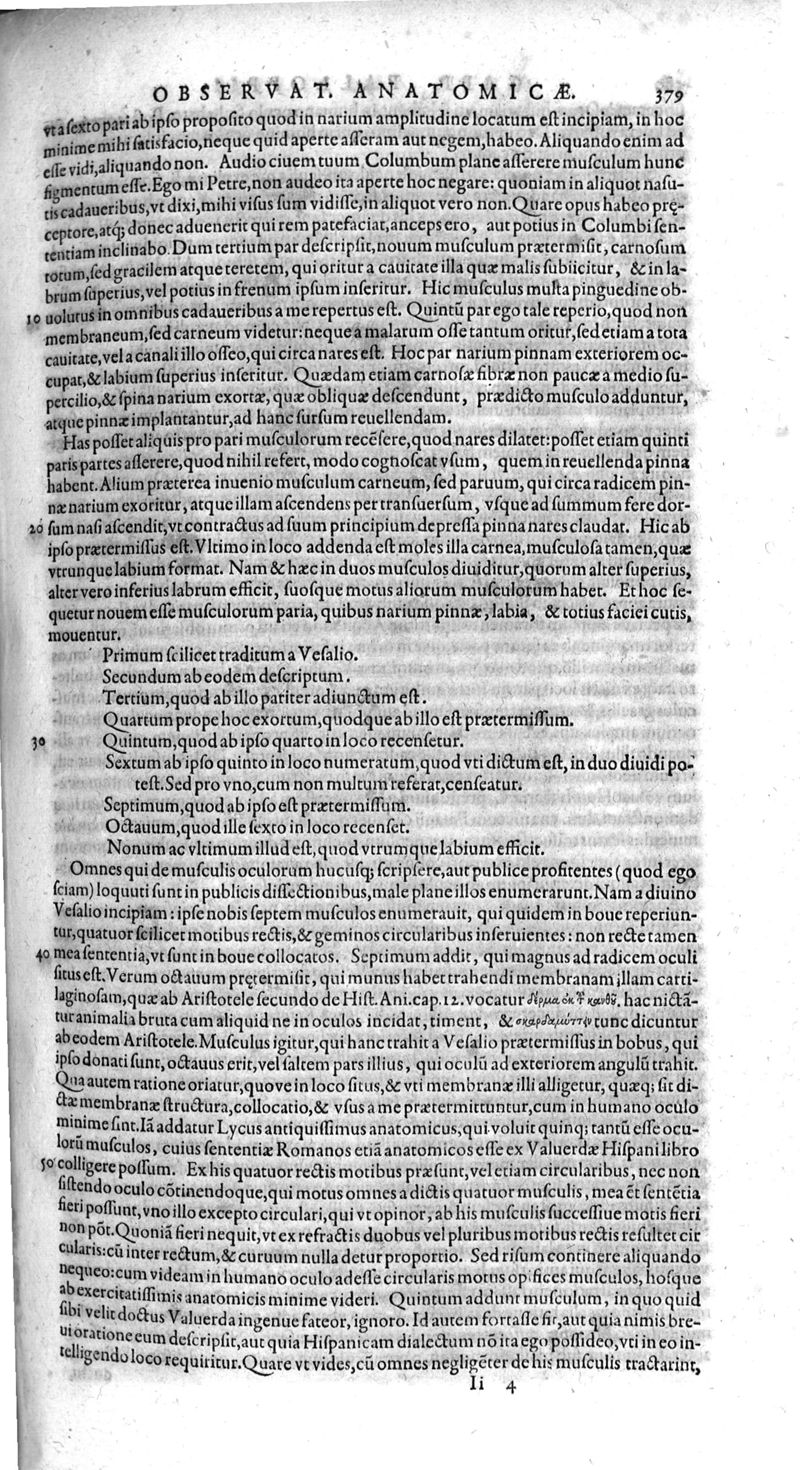 OBSERVAT. ANATOMICÆ. 379
vt a ſexto pari ab ipſo propoſito quod in narium amplitudine locatum eſt incipiam, in hoc
minime mihi ſatisfacio, neque quid aperte aſſeram aut negem, habeo. Aliquando enim ad
eſſe vidi, aliquando non. Audio ciuem tuum Columbum plane aſſerere muſculum hunc
figmentum eſſe. Ego mi Petre, non audeo ita aperte hoc negare: quoniam in aliquot naſu-
tis cadaueribus, vt dixi, mihi viſus ſum vidiſſe, in aliquot vero non. Quare opus habeo prę-
ceptore, atq; donec aduenerit qui rem patefaciat, anceps ero, aut potius in Columbi ſen-
tentiam inclinabo. Dum tertium par deſcripſit, nouum muſculum prætermiſit, carnoſum
totum, ſed gracilem atque teretem, qui oritur a cauitate illa quæ malis ſubiicitur, & in la-
brum ſuperius, vel potius in frenum ipſum inſeritur. Hic muſculus multa pinguedine ob-
10 uolutus in omnibus cadaueribus a me repertus eſt. Quintū par ego tale reperio, quod non
membraneum, ſed carneum videtur: neque a malarum oſſe tantum oritur, ſed etiam a tota
cauitate, vel a canali illo oſſeo, qui circa nares eſt. Hoc par narium pinnam exteriorem oc-
cupat, & labium ſuperius inſeritur. Quædam etiam carnoſæ fibræ non paucæ a medio ſu-
percilio, & ſpina narium exortæ, quæ obliquæ deſcendunt, prædicto muſculo adduntur,
atque pinnæ implantantur, ad hanc ſurſum reuellendam.
Has poſſet aliquis pro pari muſculorum recēſere, quod nares dilatet: poſſet etiam quinti
paris partes aſſerere, quod nihil refert, modo cognoſcat vſum, quem in reuellenda pinna
habent. Alium præterea inuenio muſculum carneum, ſed paruum, qui circa radicem pin-
næ narium exoritur, atque illam aſcendens per tranſuerſum, vſque ad ſummum fere dor-
20 ſum naſi aſcendit, vt contractus ad ſuum principium depreſſa pinna nares claudat. Hic ab
ipſo prætermiſſus eſt. Vltimo in loco addenda eſt moles illa carnea, muſculoſa tamen, quæ
vtrunque labium format. Nam & hæc in duos muſculos diuiditur, quorum alter ſuperius,
alter vero inferius labrum efficit, ſuoſque motus aliorum muſculorum habet. Et hoc ſe-
quetur nouem eſſe muſculorum paria, quibus narium pinnæ, labia, & totius faciei cutis,
mouentur.
Primum ſcilicet traditum a Veſalio.
Secundum ab eodem deſcriptum.
Tertium, quod ab illo pariter adiunctum eſt.
Quartum prope hoc exortum, quodque ab illo eſt prætermiſſum.
30 Quintum, quod ab ipſo quarto in loco recenſetur.
Sextum ab ipſo quinto in loco numeratum, quod vti dictum eſt, in duo diuidi po-
teſt. Sed pro vno, cum non multum referat, cenſeatur.
Septimum, quod ab ipſo eſt prætermiſſum.
Octauum, quod ille ſexto in loco recenſet.
Nonum ac vltimum illud eſt, quod vtrumque labium efficit.
Omnes qui de muſculis oculorum hucuſq; ſcripſere, aut publice profitentes (quod ego
ſciam) loquuti ſunt in publicis diſſectionibus, male plane illos enumerarunt. Nam a diuino
Veſalio incipiam: ipſe nobis ſeptem muſculos enumerauit, qui quidem in boue reperiun-
tur, quatuor ſcilicet motibus rectis, & geminos circularibus inſeruientes: non recte tamen
40 mea ſententia, vt ſunt in boue collocatos. Septimum addit, qui magnus ad radicem oculi
ſitus eſt. Verum octauum pręte­rmiſit, qui munus habet trahendi membranam illam carti-
laginoſam, quæ ab Ariſtotele ſecundo de Hiſt. Ani. cap. 12. vocatur . hac nictā-
tur animalia bruta cum aliquid ne in oculos incidat, timent, & σκαρδαμύττειν tunc dicuntur
ab eodem Ariſtotele. Muſculus igitur, qui hanc trahit a Veſalio prætermiſſus in bobus, qui
ipſo donati ſunt, octauus erit, vel ſaltem pars illius, qui oculū ad exteriorem angulū trahit.
Qua autem ratione oriatur, quove in loco ſitus, & vti membranæ illi alligetur, quæq; ſit di-
ctæ membranæ ſtructura, collocatio, & vſus a me prætermittuntur, cum in humano oculo
minime ſint. Iā addatur Lycus antiquiſſimus anatomicus, qui voluit quinq; tantū eſſe ocu-
lorū muſculos, cuius ſententiæ Romanos etiā anatomicos eſſe ex Valuerdæ Hiſpani libro
50 colligere poſſum. Ex his quatuor rectis motibus præſunt, vel etiam circularibus, nec non
ſiſtendo oculo cōtinendoque, qui motus omnes a dictis quatuor muſculis, mea ēt ſentētia
fieri poſſunt, vno illo excepto circulari, qui vt opinor, ab his muſculis ſucceſſiue motis fieri
non pōt. Quoniā fieri nequit, vt ex refractis duobus vel pluribus motibus rectis reſultet cir
cularis: cū inter rectum, & curuum nulla detur proportio. Sed riſum continere aliquando
nequeo: cum videam in humano oculo adeſſe circularis motus opifices muſculos, hoſque
ab exercitatiſſimis anatomicis minime videri. Quintum addunt muſculum, in quo quid
ſibi velit doctus Valuerda ingenue fateor, ignoro. Id autem fortaſſe fit, aut quia nimis bre-
ui oratione eum deſcripſit, aut quia Hiſpanicam dialectum nō ita ego poſſideo, vti in eo in-
telligendo loco requiritur. Quare vt vides, cū omnes negligēter de his muſculis tractarint,
Ii 4